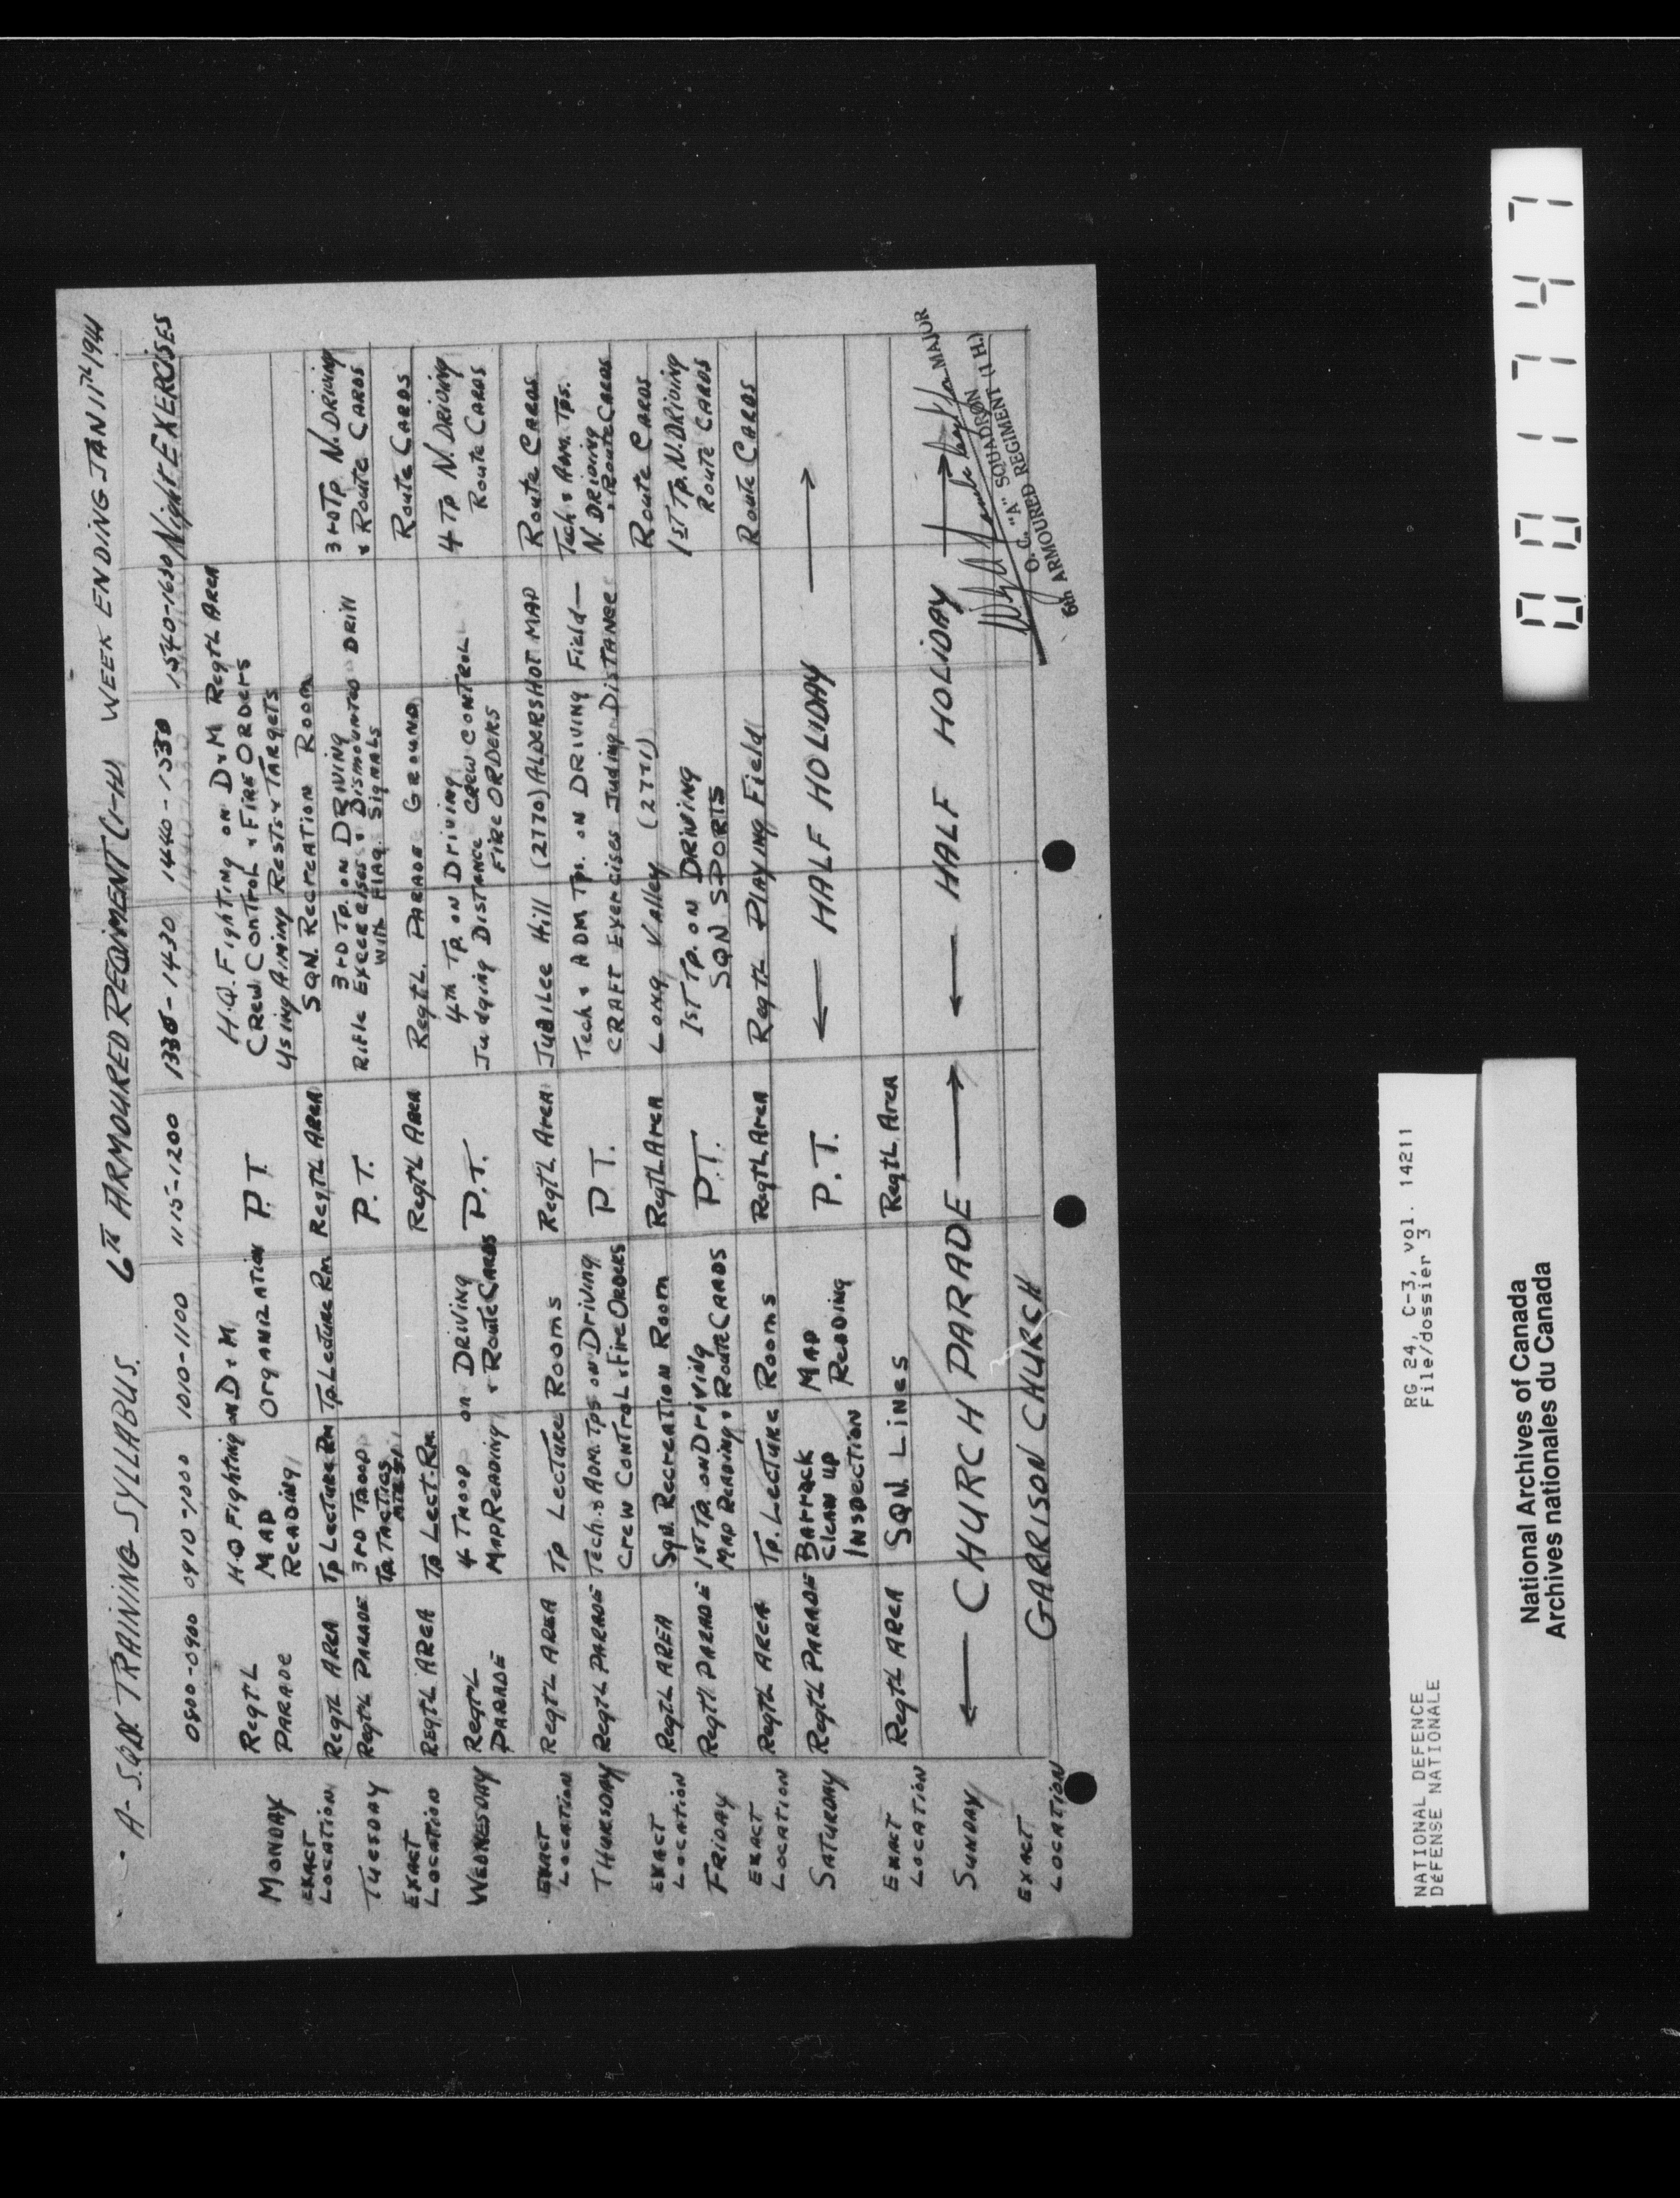 A - SQN. TRAINING SYLLABUS. 6TH ARMOURED REGIMENT (1-H) WEEK ENDING JAN 11TH 1941
0800-0900 0910-1000 1010-1100 1115-1200 1330-1430 1440-1530 1540-1630 Night EXERCISES
MONDAY RegtL PARADE H.Q Fighting on D & M MAP READING OrgANIZATION P.T. H.Q. Fighting on D & M RegtL AreA
CREW CONTROL & FIRE ORDERS
Using Aiming Rests & TArgets
EXACT LOCATION RegtL AREA Tp LectureRm Tp. Lecture Rm RegtL AREA SQN. RecreATION ROOM
TUESDAY RegtL PARADE 3rd TROOP Tp. TACTICS P.T. 3rd Tp. ON DRIVING
RiFle Exercises & Dismounted DRill
with FlAg. SigNALS
3rd Tp. N. DRIVING
& Route CARDS
EXACT LOCATION RegtL AREA Tp Lect. Rm. RegtL AREA RegtL. PARADE GROUND Route CARDS
WEDNESDAY RegtL PARADE 4 TROOP on DRIVING
MAP READING & Route CARDS P.T. 4th Tp. ON DrIVING
Judging DISTANCE CREW CONTROL
FIRE ORDERS
4 Tp N. DRIVING
Route CARDS
EXACT LOCATION RegtL AREA Tp LecTURE Rooms RegtL AreA JubiLee Hill (2770) ALDERSHOT MAP Route CARDS
THURSDAY RegtL PARADE Tech. & ADM. Tps on Driving
Crew Control & Fire ORDERS P.T. Tech & ADM Tps. ON DRIVING Field—
CRAFT Exercises Judging DisTANce
Tech & ADM. Tps.
N. DRIVING
& Route CARDS
EXACT LOCATION RegtL AREA Sqn. RecreATION Room RegtL AreA LONG VAlley (2771) Route CARDS
FRIDAY RegtL PARADE 1ST Tp. on Driving
MAP READING & Route CARDS P.T. 1ST Tp. ON DRIVING
SQN SPORTS
1ST Tp. N. DRIVING
ROUTE CARDS
EXACT LOCATION RegtL AREA Tp. LECTURE Rooms RegtL AreA RegtL PlAYING Field Route CARDS
SATURDAY RegtL PARADE BArrAck
CleAN UP
INSPECTION
MAP
READING P.T. ← HALF HOLIDAY →
EXACT LOCATION RegtL AREA SQN LINES RegtL AreA
SUNDAY ← CHURCH PARADE → ← HALF HOLIDAY →
EXACT LOCATION GARRISON CHURCH
MAJOR
O. C. "A" SQUADRON
6th ARMOURED REGIMENT (1 H.)
001747
NATIONAL DEFENCE RG 24, C-3, vol. 14211
DÉFENSE NATIONALE File/dossier 3
National Archives of Canada
Archives nationales du Canada